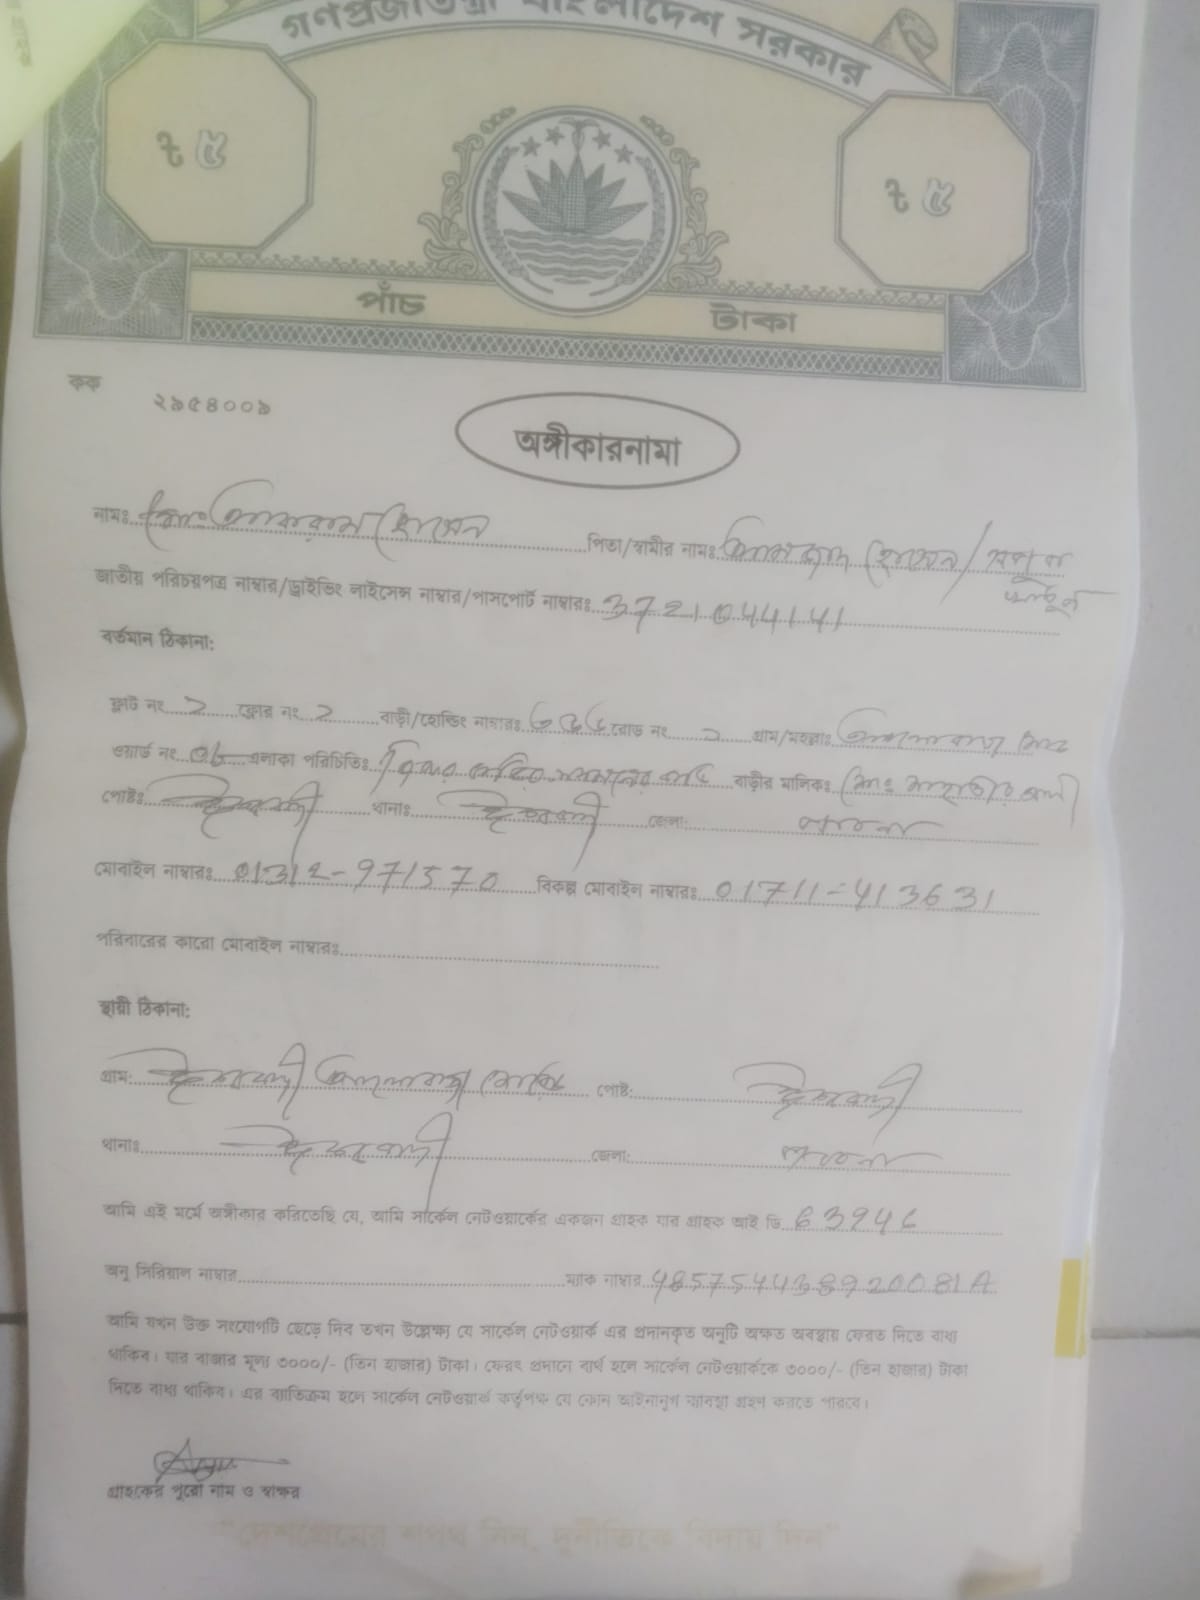 গণপ্রজাতন্ত্রী বাংলাদেশ সরকার
৳ ৫
৳ ৫
পাঁচ টাকা
কক
২৯৫৪০০৯
অঙ্গীকারনামা
নামঃ মোঃ আকরাম হোসেন পিতা/স্বামীর নামঃ হোসেন/
জাতীয় পরিচয়পত্র নাম্বার/ড্রাইভিং লাইসেন্স নাম্বার/পাসপোর্ট নাম্বারঃ 3721044141
বর্তমান ঠিকানা:
ফ্লাট নং ২ ফ্লোর নং ২ বাড়ী/হোল্ডিং নাম্বারঃ রোড নং গ্রাম/মহল্লাঃ
ওয়ার্ড নং এলাকা পরিচিতিঃ বাড়ীর মালিকঃ মোঃ আলী
পোষ্টঃ ঈশ্বরদী থানাঃ ঈশ্বরদী জেলা: পাবনা
মোবাইল নাম্বারঃ 01312-971570 বিকল্প মোবাইল নাম্বারঃ 01711-413631
পরিবারের কারো মোবাইল নাম্বারঃ
স্থায়ী ঠিকানা:
গ্রাম: ঈশ্বরদী পোষ্ট: ঈশ্বরদী
থানাঃ ঈশ্বরদী জেলা: পাবনা
আমি এই মর্মে অঙ্গীকার করিতেছি যে, আমি সার্কেল নেটওয়ার্কের একজন গ্রাহক যার গ্রাহক আই ডি
অনু সিরিয়াল নাম্বার ম্যাক নাম্বার
আমি যখন উক্ত সংযোগটি ছেড়ে দিব তখন উল্লেক্ষ্য যে সার্কেল নেটওয়ার্ক এর প্রদানকৃত অনুটি অক্ষত অবস্থায় ফেরত দিতে বাধ্য
থাকিব। যার বাজার মূল্য ৩০০০/- (তিন হাজার) টাকা। ফেরৎ প্রদানে ব্যর্থ হলে সার্কেল নেটওয়ার্ককে ৩০০০/- (তিন হাজার) টাকা
দিতে বাধ্য থাকিব। এর ব্যতিক্রম হলে সার্কেল নেটওয়ার্ক কর্তৃপক্ষ যে কোন আইনানুগ ব্যবস্থা গ্রহণ করতে পারবে।
গ্রাহকের পুরো নাম ও স্বাক্ষর
"দেশপ্রেমের শপথ নিন, দুর্নীতিকে বিদায় দিন"